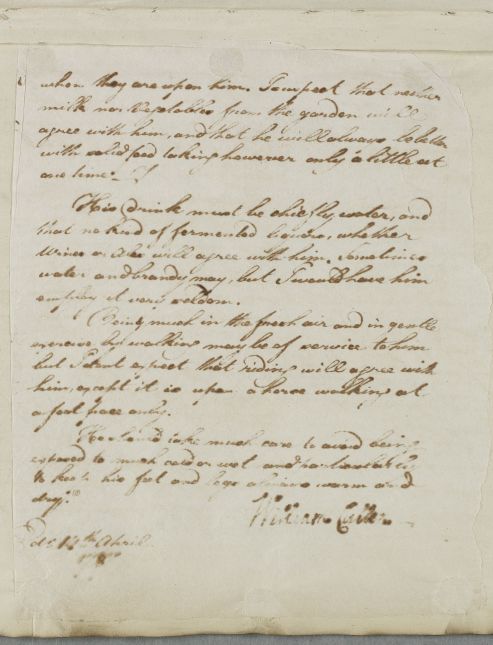 when they are upon him. I suspect that neither
milk nor Vegetables from the garden will
agree with him, and that he will always be better
with solid food taking however only a little at
one time.
His Drink must be chiefly water, and
that no kind of fermented liquors, whether
Wines or Ales will agree with him. Sometimes
water and brandy may, but I would have him
employ it very seldom.
Being much in the fresh air and in gentle
exercise by walking may be of service to him
but I dont expect that riding will agree with
him, except it is upon a horse walking at
a foot pace only.
He should take much care to avoid being
exposed to much cold or wet and particularly
to keep his feet and legs always warm and
dry.
William Cullen
April